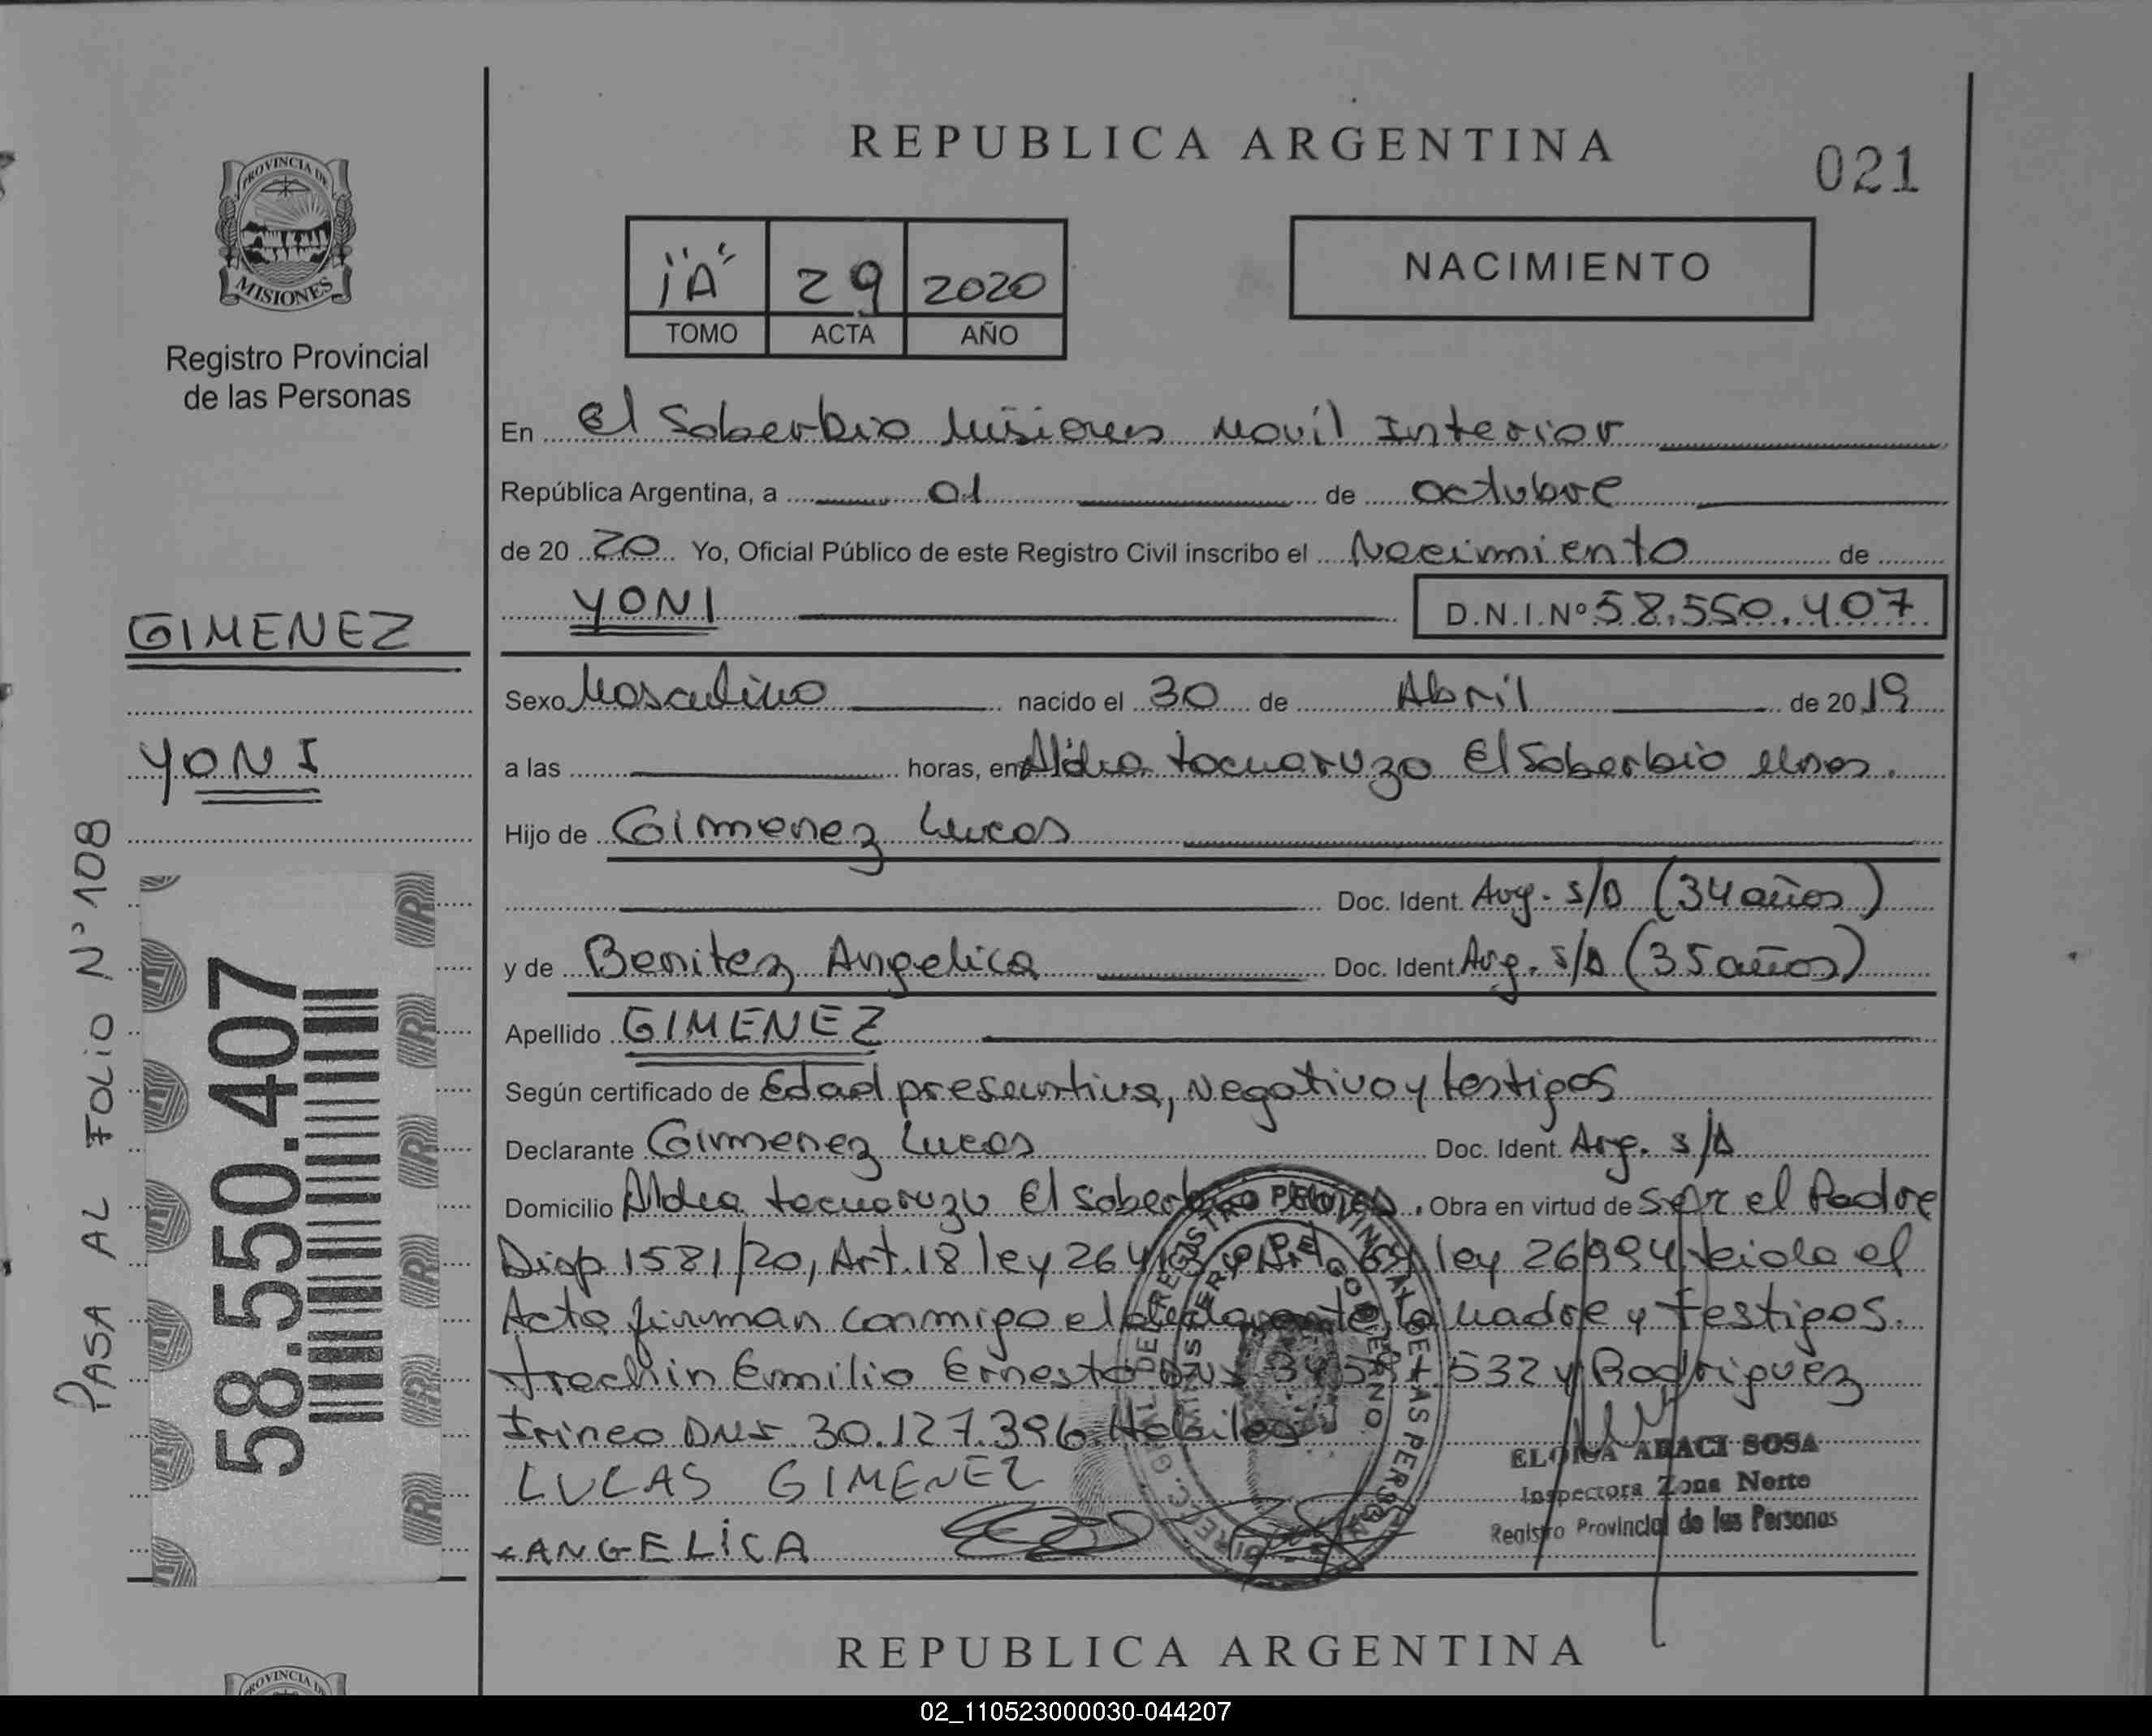 REPUBLICA ARGENTINA
021
PROVINCIA DE
MISIONES
Registro Provincial
de las Personas
"A" 29 2020
TOMO ACTA AÑO
NACIMIENTO
En El Soberbio Misiones Movil Interior
República Argentina, a 01 de octubre
de 20 20 Yo, Oficial Público de este Registro Civil inscribo el Nacimiento de
YONI D.N.I.Nº 58.550.407
GIMENEZ
YONI
PASA AL FOLIO Nº 108
58.550.407
Sexo Masculino nacido el 30 de Abril de 2019
a las horas, en Aldea tacuaruzo El Soberbio Mnes.
Hijo de Gimenez Lucas
Doc. Ident. Arg. S/D (34 años)
y de Benitez Angelica Doc. Ident. Arg. S/D (35 años)
Apellido GIMENEZ
Según certificado de Edad presuntiva, Negativo y testigos
Declarante Gimenez Lucas Doc. Ident. Arg. S/D
Domicilio Aldea tacuaruzu El Soberbio . Obra en virtud de Ser el Padre
Disp 1581/20, Art. 18 ley 26413 y Art. 64 ley 26994 leida el
Acta firman conmigo el declarante, la madre y testigos.
Trechin Emilio Ernesto DNI 532 y Rodriguez
Irineo DNI 30.127.396 Habiles
LUCAS GIMENEZ
ANGELICA
ARACI SOSA
Inspectora Zona Norte
Registro Provincial de las Personas
REPUBLICA ARGENTINA
PROVINCIA D
02_110523000030-044207